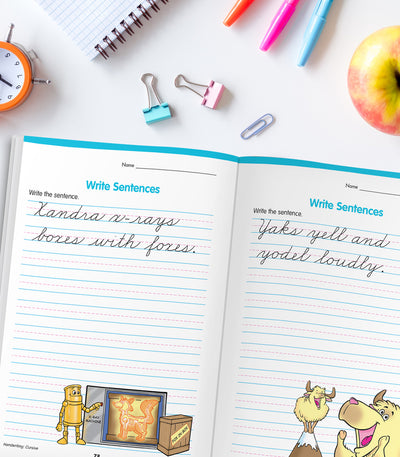 Name
Write Sentences
Write the sentence.
Xandra x-rays
boxes with foxes.
X-RAY
MACHINE
Handwriting: Cursive
73
Name
Write Sentences
Write the sentence.
Yaks yell and
yodel loudly.